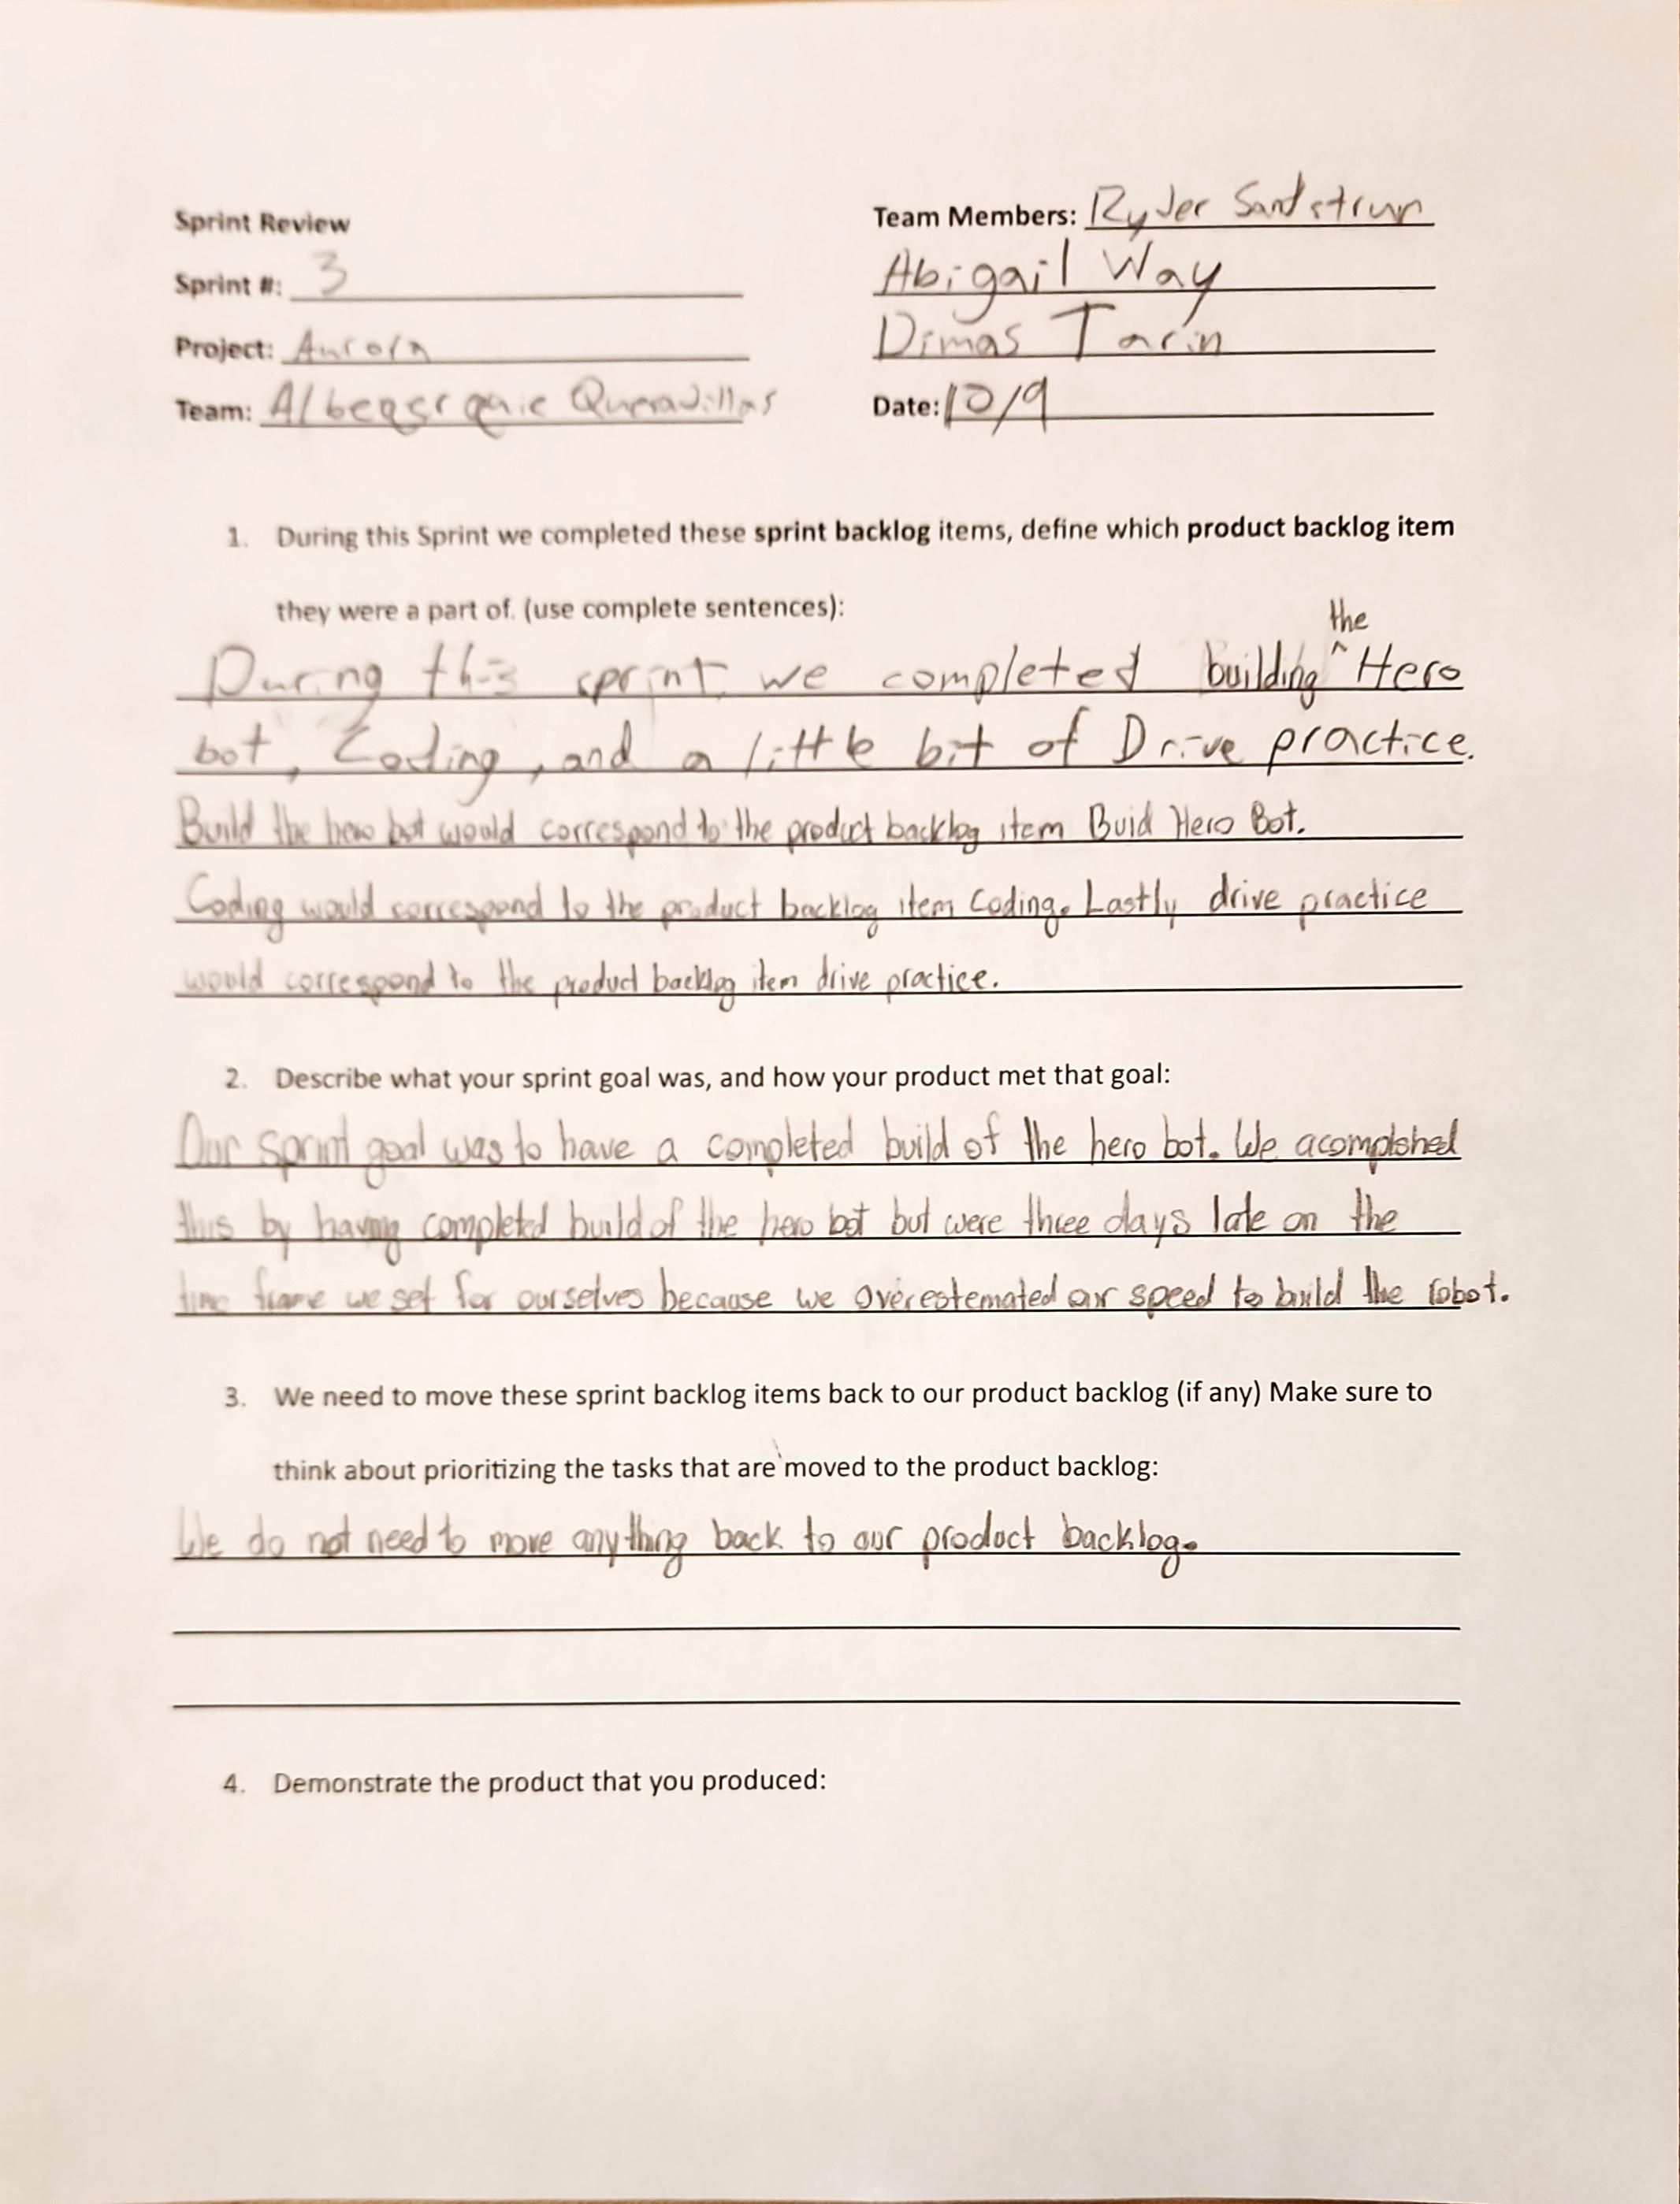 Sprint Review
Team Members: Ryder
Abigail Way
Dimas Tarin
Sprint #: 3
Project: Aurora
Team:
Date: 10/9
1. During this Sprint we completed these sprint backlog items, define which product backlog item
they were a part of. (use complete sentences):
the
During this sprint we completed building ^ Hero
bot, Coding, and a little bit of Drive practice.
Build the hero bot would correspond to the product backlog item Buid Hero Bot.
Coding would correspond to the product backlog item Coding. Lastly drive practice
would correspond to the product backlog item drive practice.
2. Describe what your sprint goal was, and how your product met that goal:
Our sprint goal was to have a completed build of the hero bot. We
this by having completed build of the hero bot but were three days late on the
time frame we set for ourselves because we overestemated our speed to build the robot.
3. We need to move these sprint backlog items back to our product backlog (if any) Make sure to
think about prioritizing the tasks that are moved to the product backlog:
We do not need to move anything back to our product backlog.
4. Demonstrate the product that you produced: